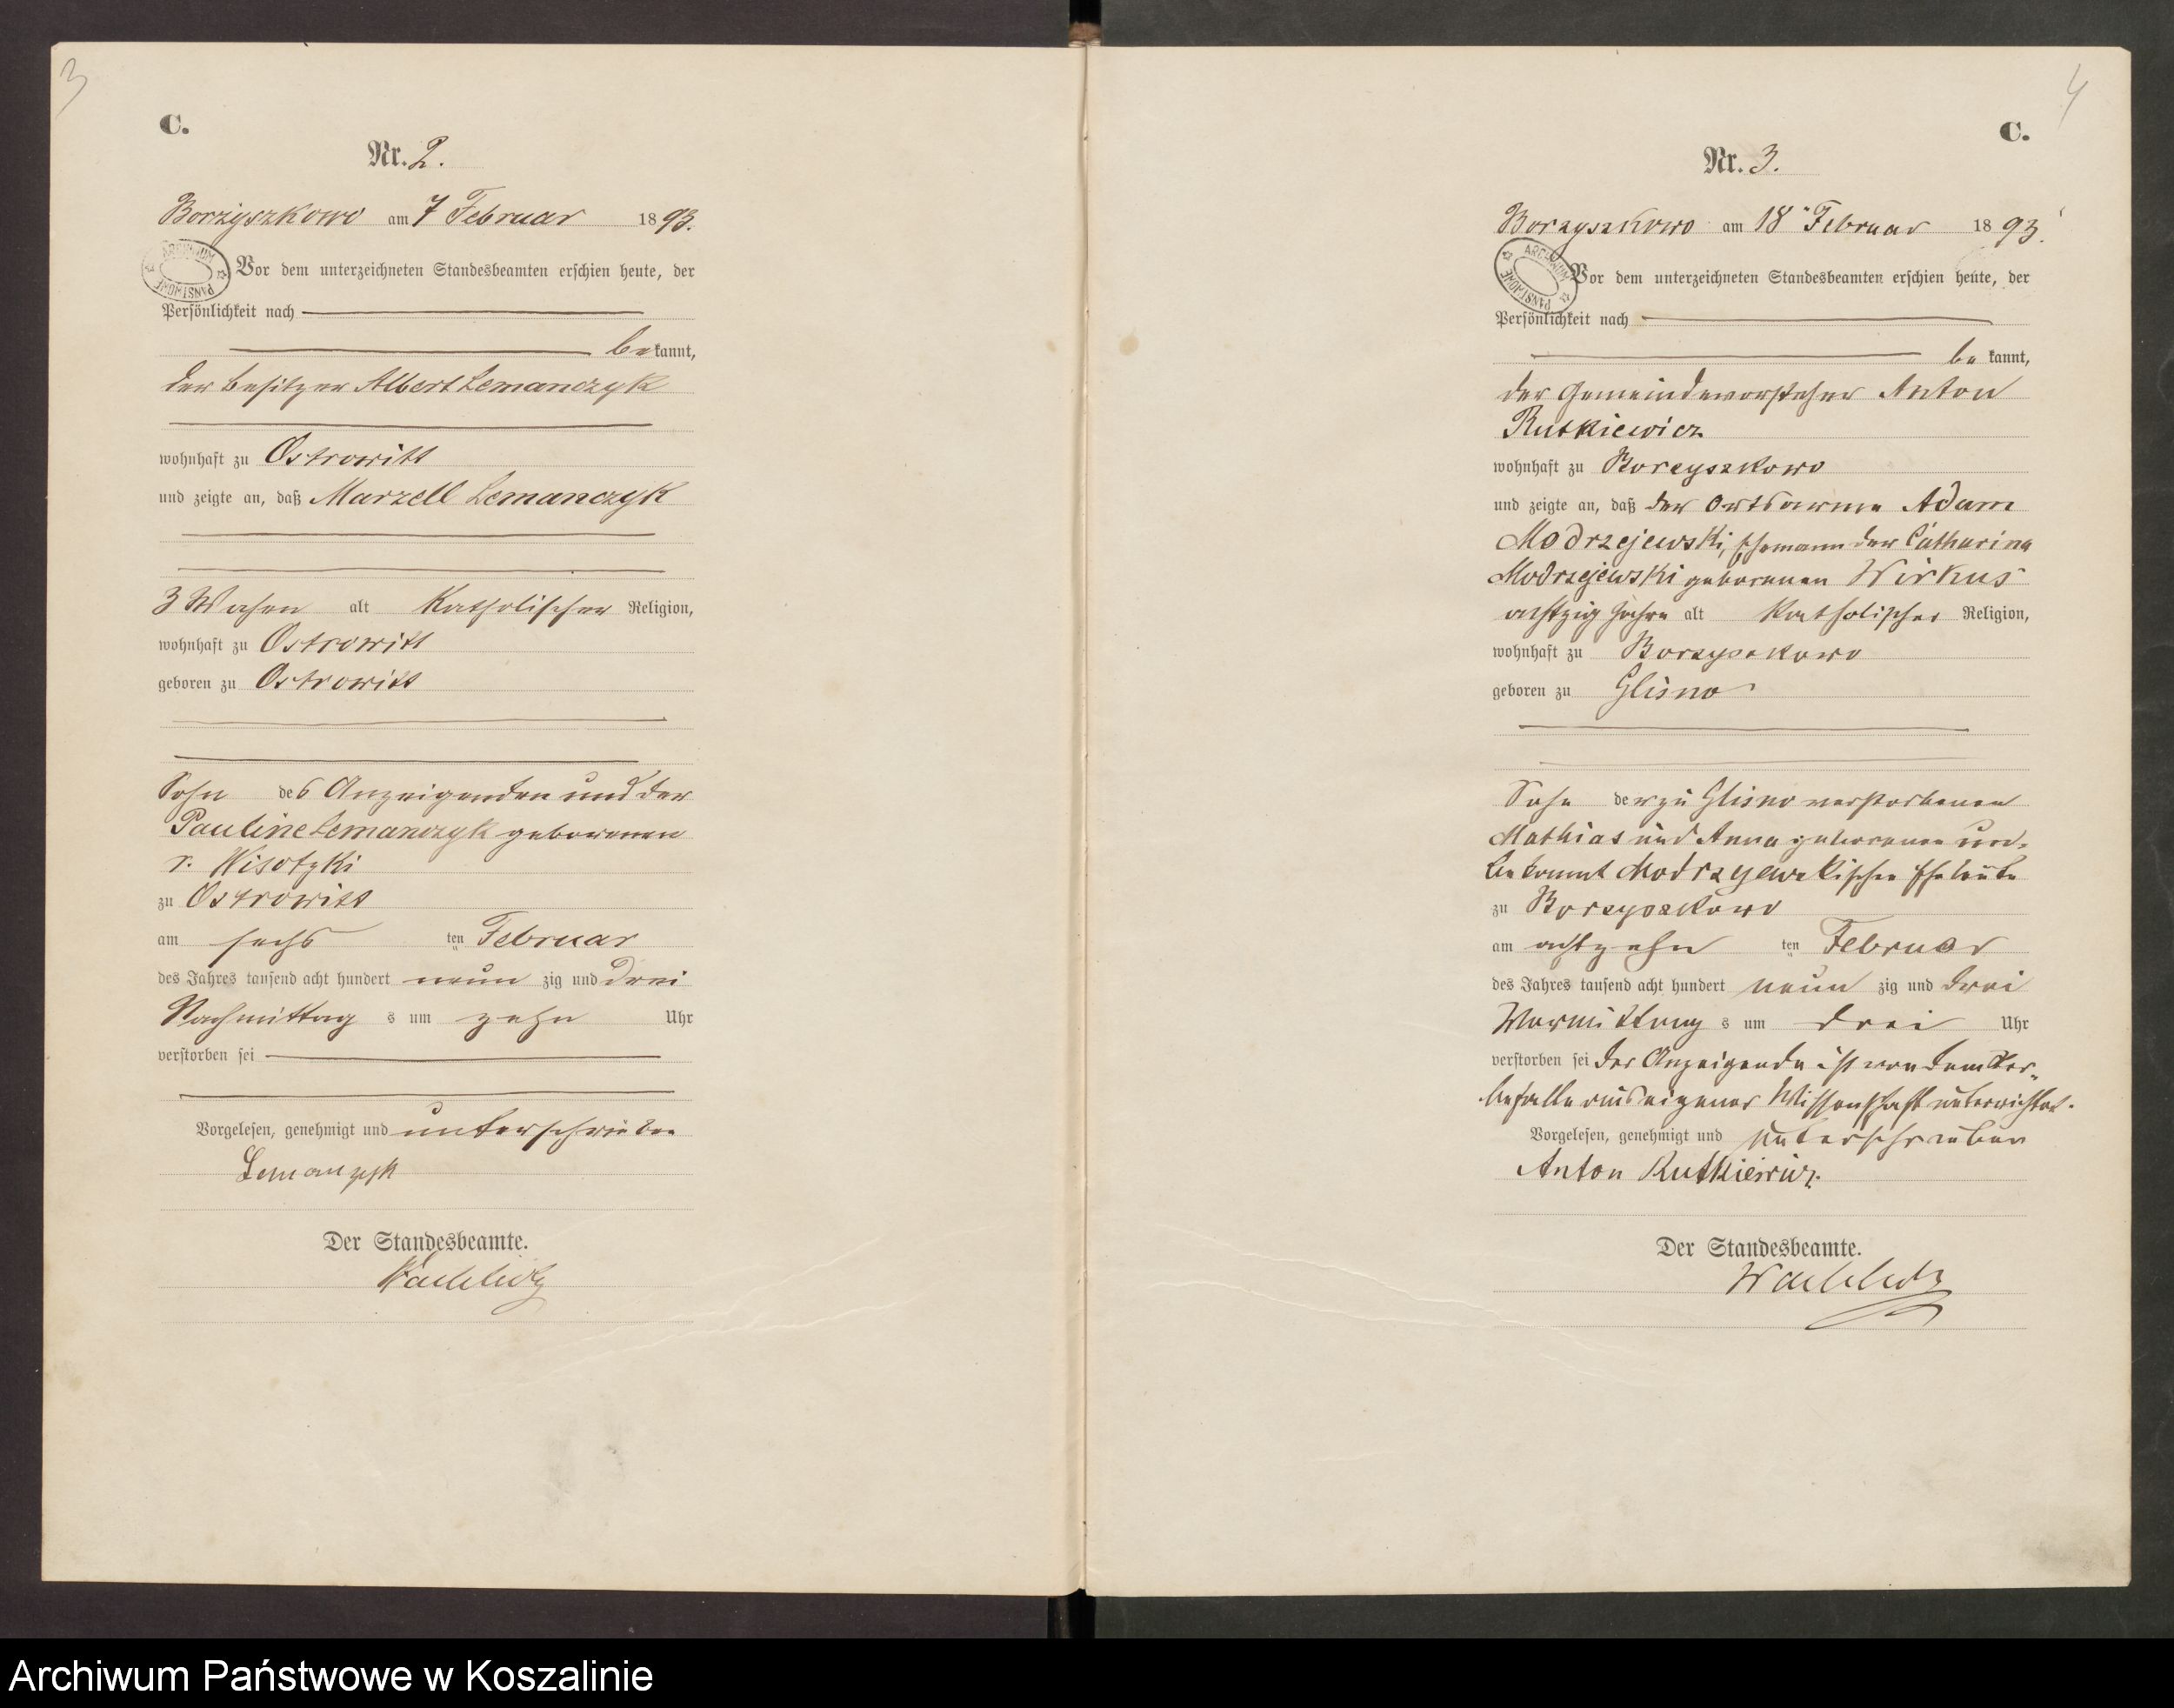 3
C.
Nr. 2.
Borzyszkowo am 7 Februar 1893.
ARCHIWUM PAŃSTWOWE
Vor dem unterzeichneten Standesbeamten erschien heute, der
Persönlichkeit nach
bekannt,
der Besitzer Albert Lemanczyk
wohnhaft zu Ostrowitt
und zeigte an, daß Marzell Lemanczyk
3 Wochen alt katholischer Religion,
wohnhaft zu Ostrowitt
geboren zu Ostrowitt
Sohn des Anzeigenden und der
Pauline Lemanczyk geborenen
v. Wisotzki
zu Ostrowitt
am sechs ten Februar
des Jahres tausend acht hundert neun zig und drei
Nachmittag s um zehn Uhr
verstorben sei
Vorgelesen, genehmigt und unterschrieben
Lemanzyk
Der Standesbeamte.
4
C.
Nr. 3.
Borzyszkowo am 18 Februar 1893.
ARCHIWUM PAŃSTWOWE
Vor dem unterzeichneten Standesbeamten erschien heute, der
Persönlichkeit nach
be kannt,
der Gemeindevorsteher Anton
Rutkiewicz
wohnhaft zu Borzyszkowo
und zeigte an, daß der Ortsarme Adam
Modrzejewski, Ehemann der Catharina
Modrzejewski geborenen Wirkus
achtzig Jahre alt katholischer Religion,
wohnhaft zu Borzyszkowo
geboren zu Glisno
Sohn der zu Glisno verstorbenen
Mathias und Anna geborenen un-
bekannt Modrzejewskischen Eheleute
zu Borzyszkowo
am achtzehn ten Februar
des Jahres tausend acht hundert neun zig und drei
Vormittag s um drei Uhr
verstorben sei der Anzeigende ist von dem Ster-
befalle aus eigener Wissenschaft unterrichtet.
Vorgelesen, genehmigt und unterschrieben
Anton Rutkiewicz.
Der Standesbeamte.
Archiwum Państwowe w Koszalinie